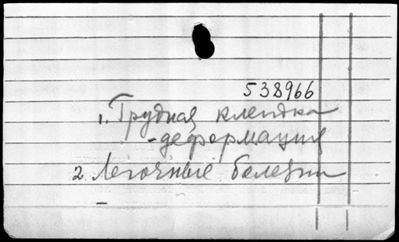 538966
1. Грудная клетка
- деформация
2. Легочные болезни
-